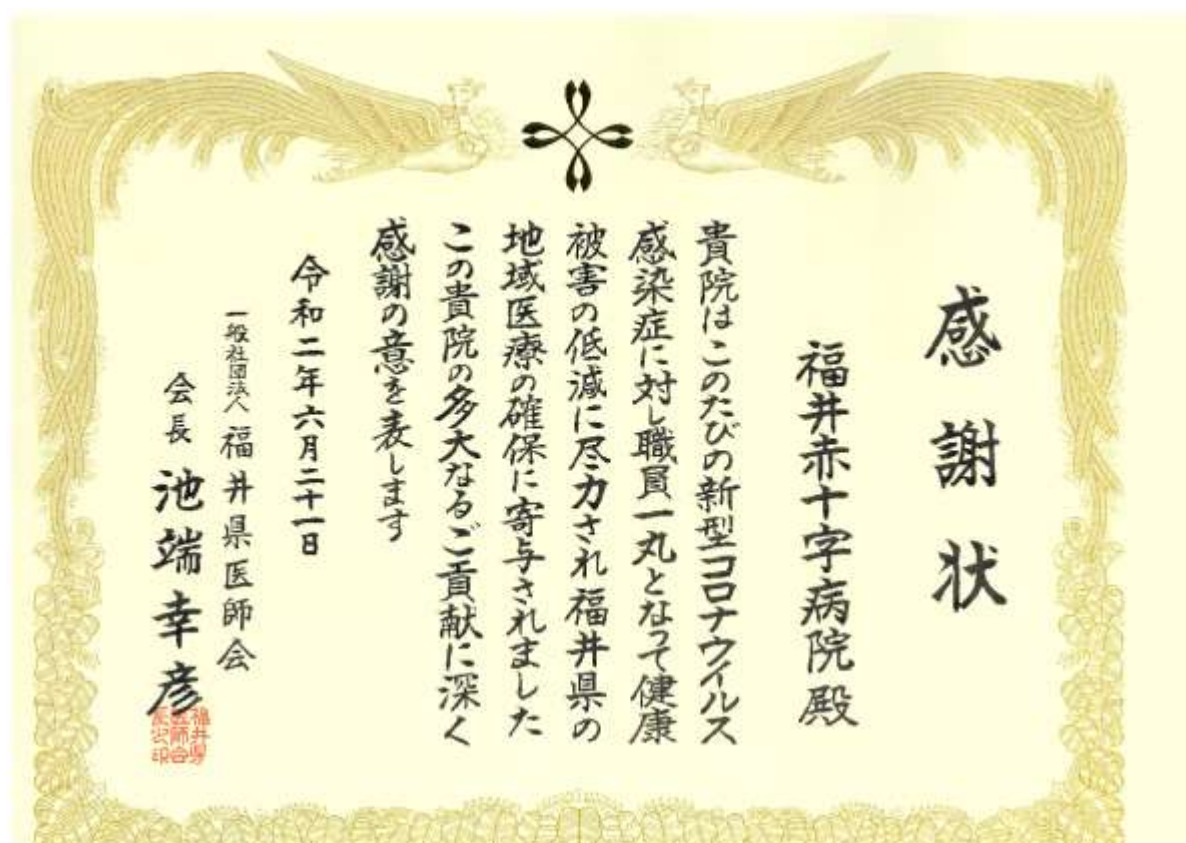 感謝状
福井赤十字病院殿
貴院はこのたびの新型コロナウイルス
感染症に対し職員一丸となって健康
被害の低減に尽力され福井県の
地域医療の確保に寄与されました
この貴院の多大なるご貢献に深く
感謝の意を表します
令和二年六月二十一日
一般社団法人 福井県医師会
会長 池端幸彦
福井県
医師会
長之印